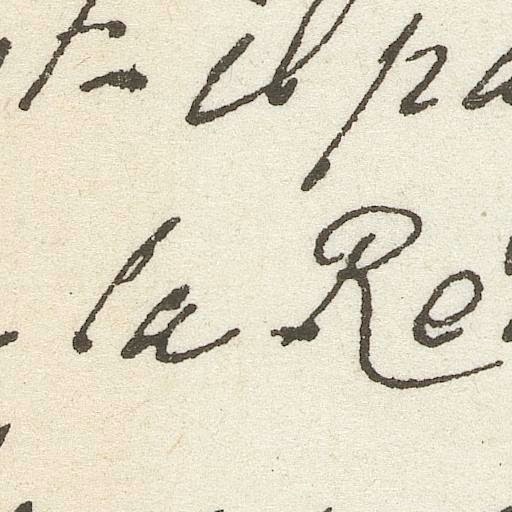 t-il pa
la Re